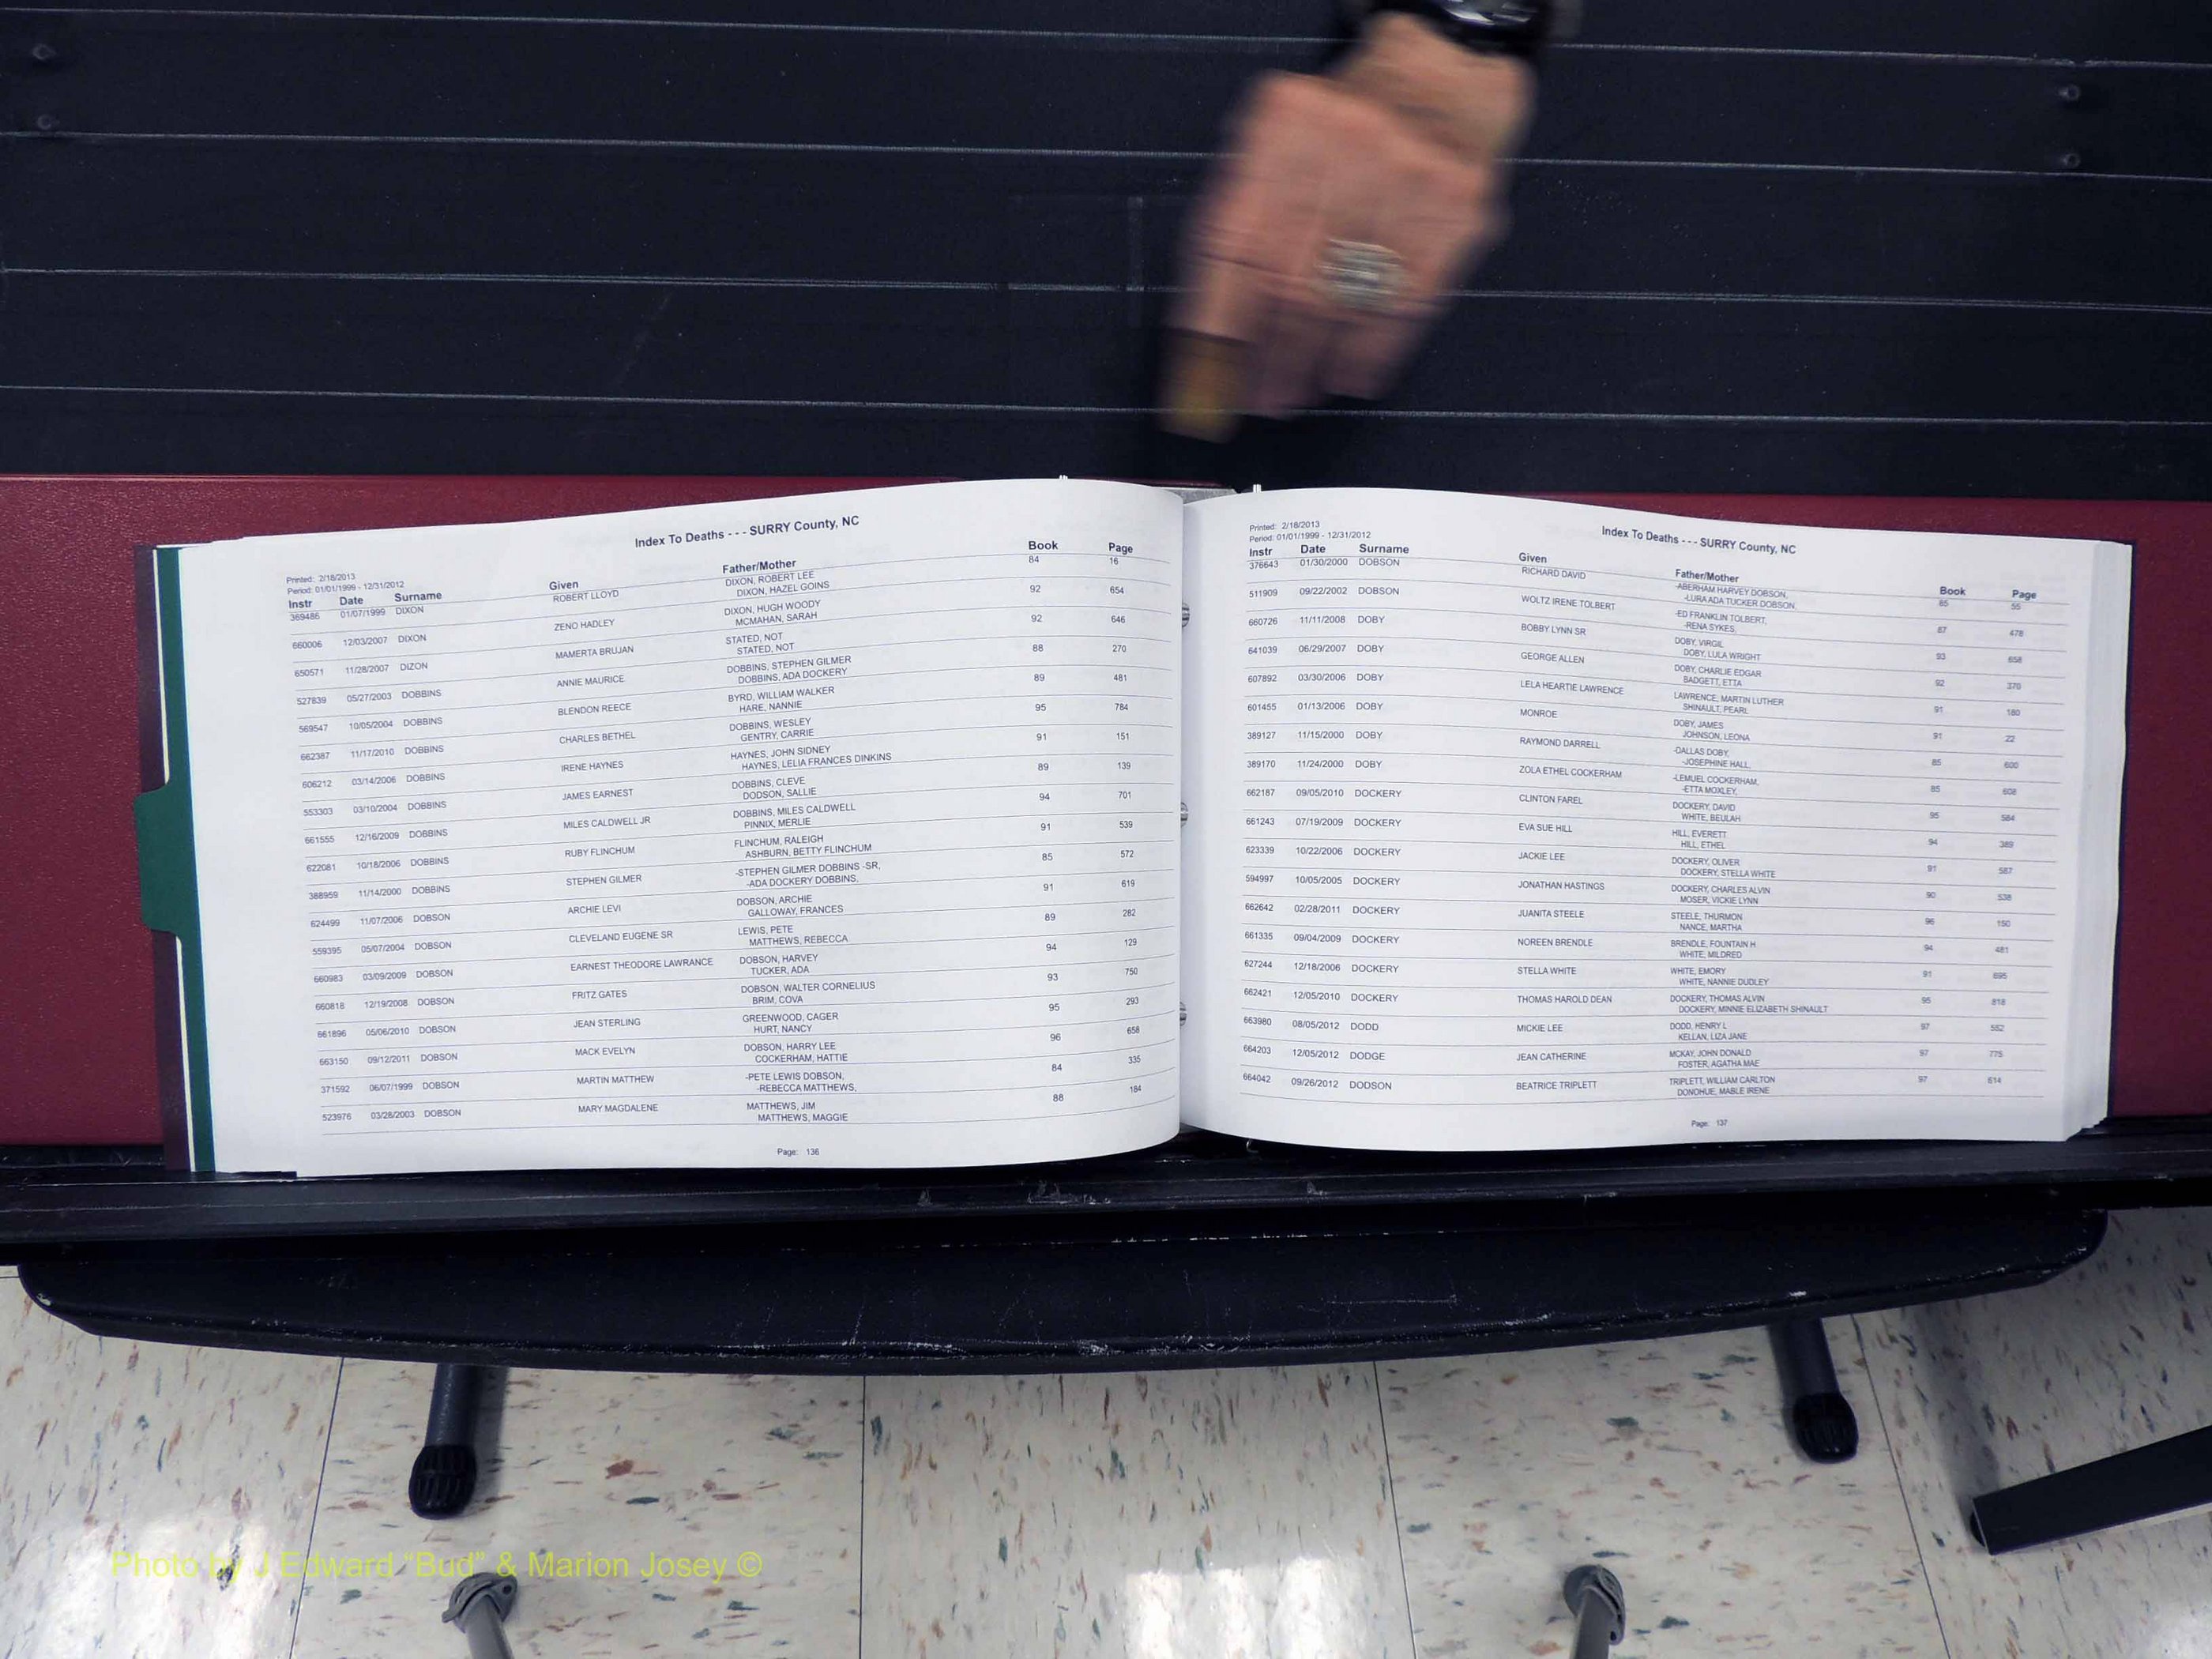 Index To Deaths - - - SURRY County, NC
Printed: 2/18/2013
Period: 01/01/1999 - 12/31/2012
Instr Date Surname Given Father/Mother Book Page
369486 01/07/1999 DIXON ROBERT LLOYD DIXON, ROBERT LEE 84 16
DIXON, HAZEL GOINS
660006 12/03/2007 DIXON ZENO HADLEY DIXON, HUGH WOODY 92 654
MCMAHAN, SARAH
650571 11/28/2007 DIZON MAMERTA BRUJAN STATED, NOT 92 646
STATED, NOT
527839 05/27/2003 DOBBINS ANNIE MAURICE DOBBINS, STEPHEN GILMER 88 270
DOBBINS, ADA DOCKERY
569547 10/05/2004 DOBBINS BLENDON REECE BYRD, WILLIAM WALKER 89 481
HARE, NANNIE
662387 11/17/2010 DOBBINS CHARLES BETHEL DOBBINS, WESLEY 95 784
GENTRY, CARRIE
606212 03/14/2006 DOBBINS IRENE HAYNES HAYNES, JOHN SIDNEY 91 151
HAYNES, LELIA FRANCES DINKINS
553303 03/10/2004 DOBBINS JAMES EARNEST DOBBINS, CLEVE 89 139
DODSON, SALLIE
661555 12/16/2009 DOBBINS MILES CALDWELL JR DOBBINS, MILES CALDWELL 94 701
PINNIX, MERLIE
622081 10/18/2006 DOBBINS RUBY FLINCHUM FLINCHUM, RALEIGH 91 539
ASHBURN, BETTY FLINCHUM
388959 11/14/2000 DOBBINS STEPHEN GILMER -STEPHEN GILMER DOBBINS -SR, 85 572
-ADA DOCKERY DOBBINS,
624499 11/07/2006 DOBSON ARCHIE LEVI DOBSON, ARCHIE 91 619
GALLOWAY, FRANCES
559395 05/07/2004 DOBSON CLEVELAND EUGENE SR LEWIS, PETE 89 282
MATTHEWS, REBECCA
660983 03/09/2009 DOBSON EARNEST THEODORE LAWRANCE DOBSON, HARVEY 94 129
TUCKER, ADA
660818 12/19/2008 DOBSON FRITZ GATES DOBSON, WALTER CORNELIUS 93 750
BRIM, COVA
661896 05/06/2010 DOBSON JEAN STERLING GREENWOOD, CAGER 95 293
HURT, NANCY
663150 09/12/2011 DOBSON MACK EVELYN DOBSON, HARRY LEE 96 658
COCKERHAM, HATTIE
371592 06/07/1999 DOBSON MARTIN MATTHEW -PETE LEWIS DOBSON, 84 335
-REBECCA MATTHEWS,
523976 03/28/2003 DOBSON MARY MAGDALENE MATTHEWS, JIM 88 184
MATTHEWS, MAGGIE
Page: 136
Printed: 2/18/2013
Period: 01/01/1999 - 12/31/2012
Index To Deaths - - - SURRY County, NC
Instr Date Surname Given Father/Mother Book Page
376643 01/30/2000 DOBSON RICHARD DAVID -ABERHAM HARVEY DOBSON, 85 55
-LURA ADA TUCKER DOBSON,
511909 09/22/2002 DOBSON WOLTZ IRENE TOLBERT -ED FRANKLIN TOLBERT, 87 478
-RENA SYKES,
660726 11/11/2008 DOBY BOBBY LYNN SR DOBY, VIRGIL 93 658
DOBY, LULA WRIGHT
641039 06/29/2007 DOBY GEORGE ALLEN DOBY, CHARLIE EDGAR 92 370
BADGETT, ETTA
607892 03/30/2006 DOBY LELA HEARTIE LAWRENCE LAWRENCE, MARTIN LUTHER 91 180
SHINAULT, PEARL
601455 01/13/2006 DOBY MONROE DOBY, JAMES 91 22
JOHNSON, LEONA
389127 11/15/2000 DOBY RAYMOND DARRELL -DALLAS DOBY, 85 600
-JOSEPHINE HALL,
389170 11/24/2000 DOBY ZOLA ETHEL COCKERHAM -LEMUEL COCKERHAM, 85 608
-ETTA MOXLEY,
662187 09/05/2010 DOCKERY CLINTON FAREL DOCKERY, DAVID 95 584
WHITE, BEULAH
661243 07/19/2009 DOCKERY EVA SUE HILL HILL, EVERETT 94 389
HILL, ETHEL
623339 10/22/2006 DOCKERY JACKIE LEE DOCKERY, OLIVER 91 587
DOCKERY, STELLA WHITE
594997 10/05/2005 DOCKERY JONATHAN HASTINGS DOCKERY, CHARLES ALVIN 90 538
MOSER, VICKIE LYNN
662642 02/28/2011 DOCKERY JUANITA STEELE STEELE, THURMON 96 150
NANCE, MARTHA
661335 09/04/2009 DOCKERY NOREEN BRENDLE BRENDLE, FOUNTAIN H 94 481
WHITE, MILDRED
627244 12/18/2006 DOCKERY STELLA WHITE WHITE, EMORY 91 695
WHITE, NANNIE DUDLEY
662421 12/05/2010 DOCKERY THOMAS HAROLD DEAN DOCKERY, THOMAS ALVIN 95 818
DOCKERY, MINNIE ELIZABETH SHINAULT
663980 08/05/2012 DODD MICKIE LEE DODD, HENRY L 97 552
KELLAN, LIZA JANE
664203 12/05/2012 DODGE JEAN CATHERINE MCKAY, JOHN DONALD 97 775
FOSTER, AGATHA MAE
664042 09/26/2012 DODSON BEATRICE TRIPLETT TRIPLETT, WILLIAM CARLTON 97 614
DONOHUE, MABLE IRENE
Page: 137
Photo by J Edward "Bud" & Marion Josey ©